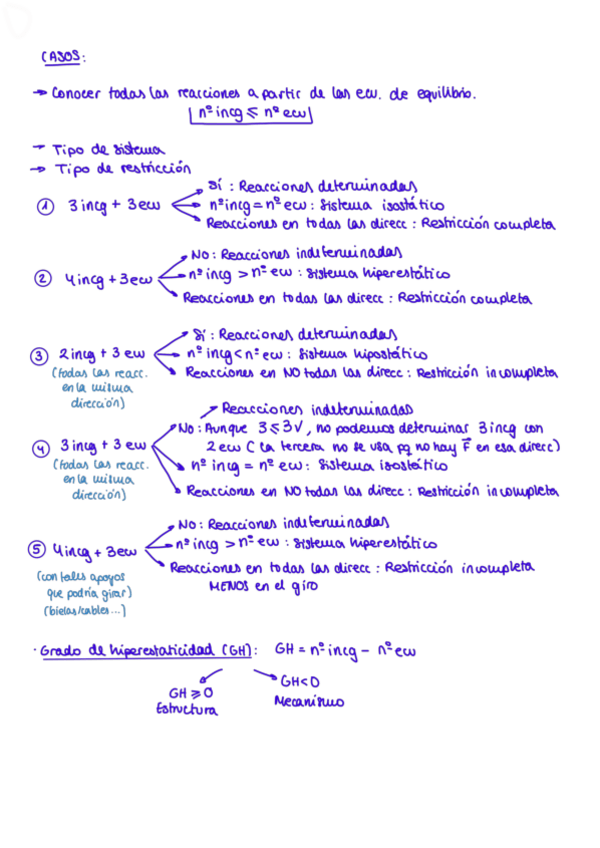 CASOS:
→ Conocer todas las reacciones a partir de las ecu. de equilibrio.
| nº incg ⩽ nº ecu |
→ Tipo de sistema
→ Tipo de restricción
Sí : Reacciones determinadas
① 3 incg + 3 ecu nº incg = nº ecu : Sistema isostático
Reacciones en todas las direcc : Restricción completa
No : Reacciones indeterminadas
② 4 incg + 3 ecu nº incg > nº ecu : Sistema hiperestático
Reacciones en todas las direcc : Restricción completa
Sí : Reacciones determinadas
③ 2 incg + 3 ecu nº incg < nº ecu : Sistema hipostático
(todas las reacc. Reacciones en NO todas las direcc : Restricción incompleta
en la misma
dirección)
Reacciones indeterminadas
No : Aunque 3 ⩽ 3 √, no podemos determinar 3 incg con
④ 3 incg + 3 ecu 2 ecu ( la tercera no se usa pq no hay F⃗ en esa direcc)
(todas las reacc. nº incg = nº ecu : Sistema isostático
en la misma
dirección) Reacciones en NO todas las direcc : Restricción incompleta
No : Reacciones indeterminadas
⑤ 4 incg + 3 ecu nº incg > nº ecu : Sistema hiperestático
(con tales apoyos Reacciones en todas las direcc : Restricción incompleta
que podría girar) MENOS en el giro
(bielas/cables...)
· Grado de hiperestaticidad (GH) : GH = nº incg − nº ecu
GH ⩾ 0 GH < 0
Estructura Mecanismo